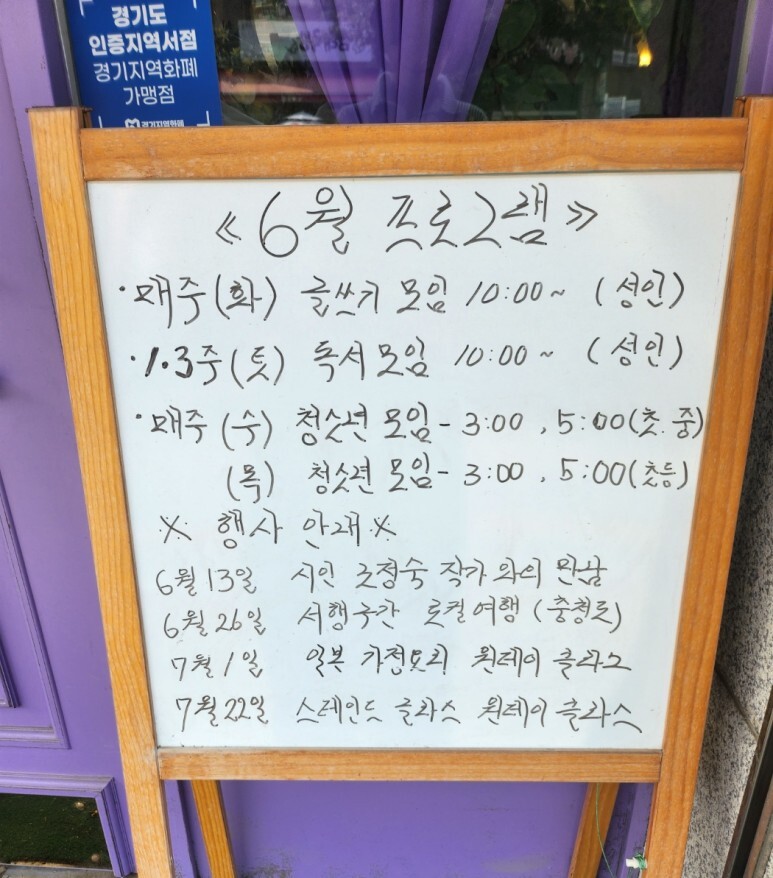 경기도
인증지역서점
경기지역화폐
가맹점
경기지역화폐
≪ 6월 프로그램 ≫
· 매주(화) 글쓰기 모임 10:00~ (성인)
· 1.3주(토) 독서모임 10:00~ (성인)
· 매주 (수) 청소년 모임 - 3:00, 5:00(초.중)
(목) 청소년 모임 - 3:00, 5:00(초등)
※ 행사 안내 ※
6월 13일 시인 조정숙 작가와의 만남
6월 26일 서행구간 로컬여행 (충청도)
7월 1일 일본 가정요리 원데이 클라스
7월 22일 스테인드 글라스 원데이 클라스